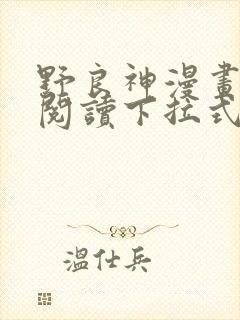 野良神漫畫
閱讀下拉式
溫仕兵